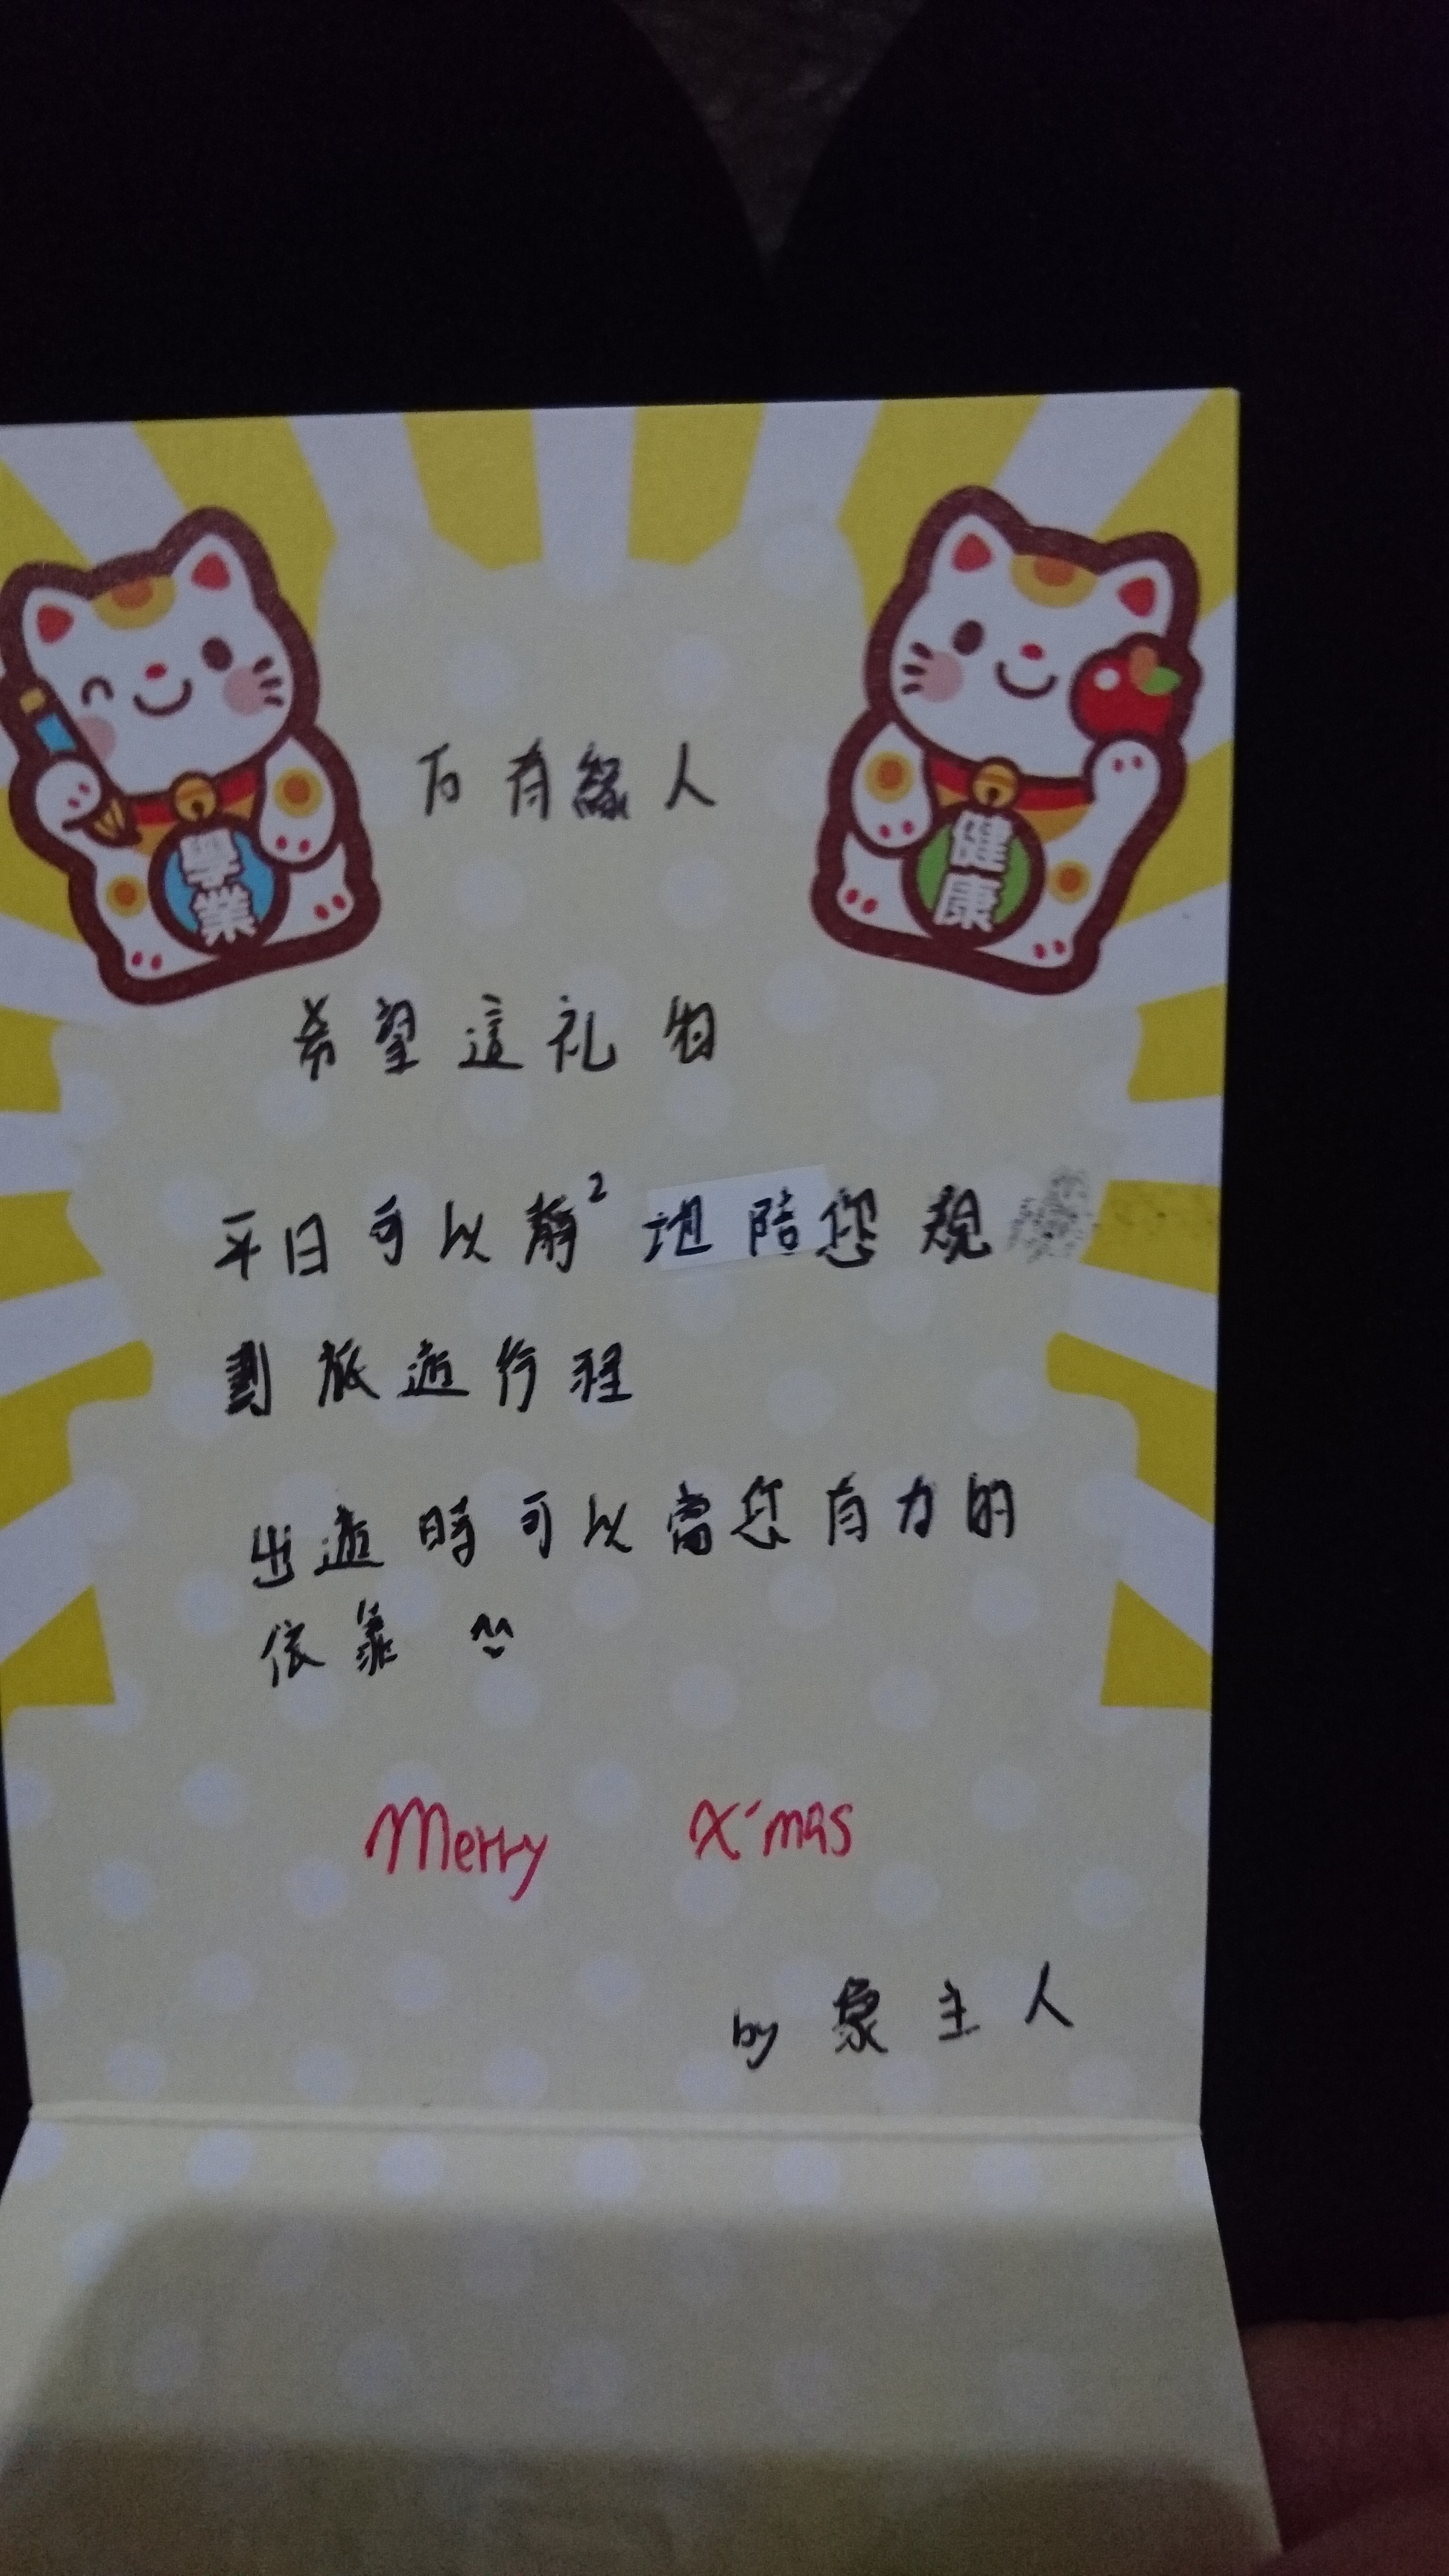 學業
健康
有緣人
希望這礼物
平日可以静²地陪您規
劃旅遊行程
出遊時可以當您有力的
依靠 ^^
Merry X'mas
by 象主人